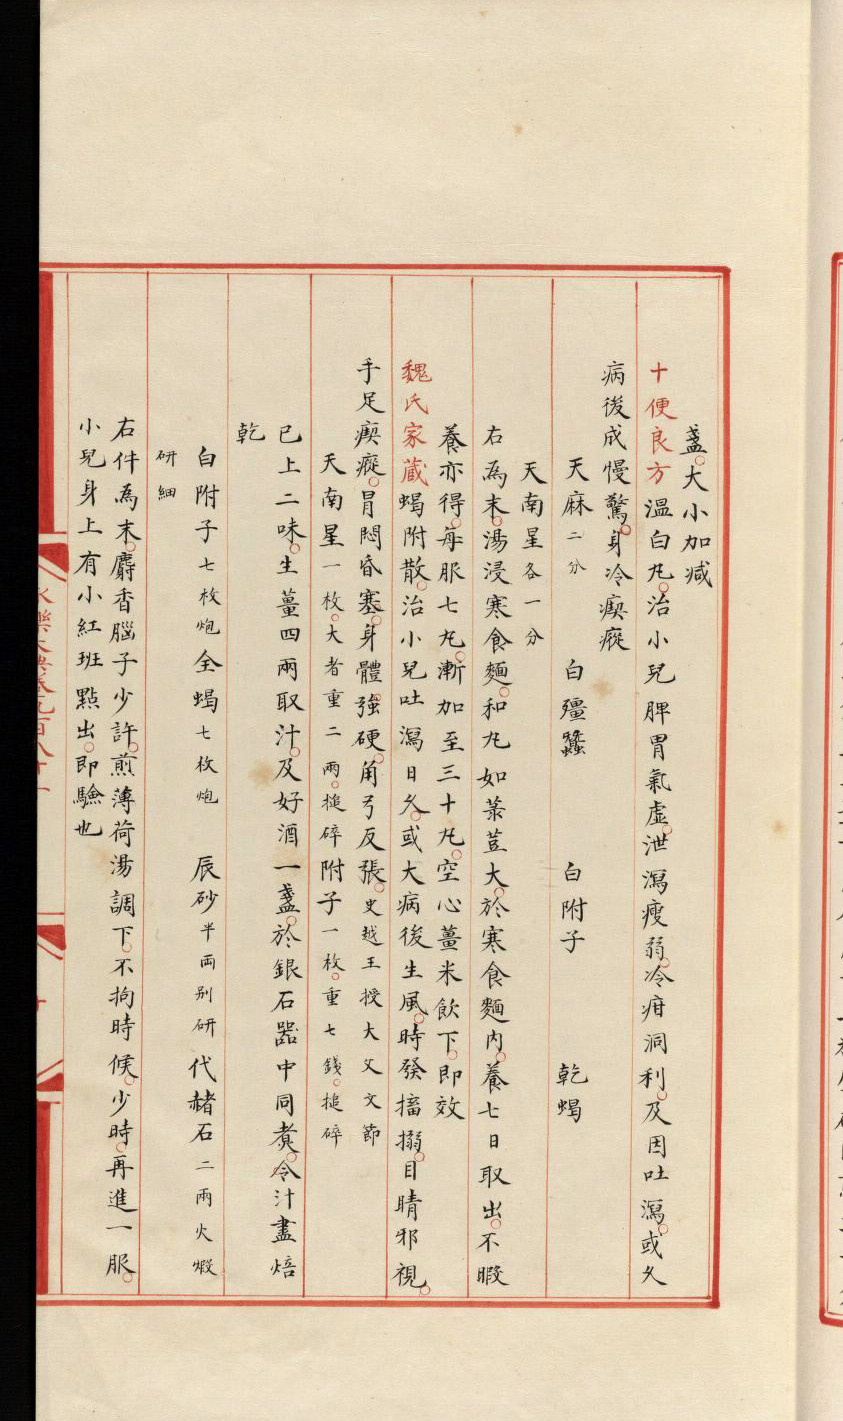 盞。大小加減
十便良方溫白丸。治小兒脾胃氣虛。泄瀉瘦弱。冷疳洞利。及因吐瀉。或久
病後成慢驚。身冷瘈瘲
天麻二分 白殭蠶 白附子 乾蝎
天南星各一分
右為末。湯浸寒食麵。和丸如菉荳大。於寒食麵內。養七日取出。不暇
養亦得。每服七丸。漸加至三十丸。空心薑米飲下。即效
魏氏家藏蝎附散。治小兒吐瀉日久。或大病後生風。時發搐搦。目睛邪視。
手足瘈瘲。胃悶昏塞。身體強硬。角弓反張。史越王授大父文節
天南星一枚。大者重二兩。搥碎附子一枚。重七錢。搥碎
已上二味。生薑四兩取汁。及好酒一盞。於銀石器中同煑。令汁盡焙
乾
白附子七枚炮全蝎七枚炮 辰砂半兩別研代赭石二兩火煅
研細
右件為末。麝香腦子少許。煎薄荷湯調下。不拘時候。少時。再進一服。
小兒身上有小紅班點出。即驗也